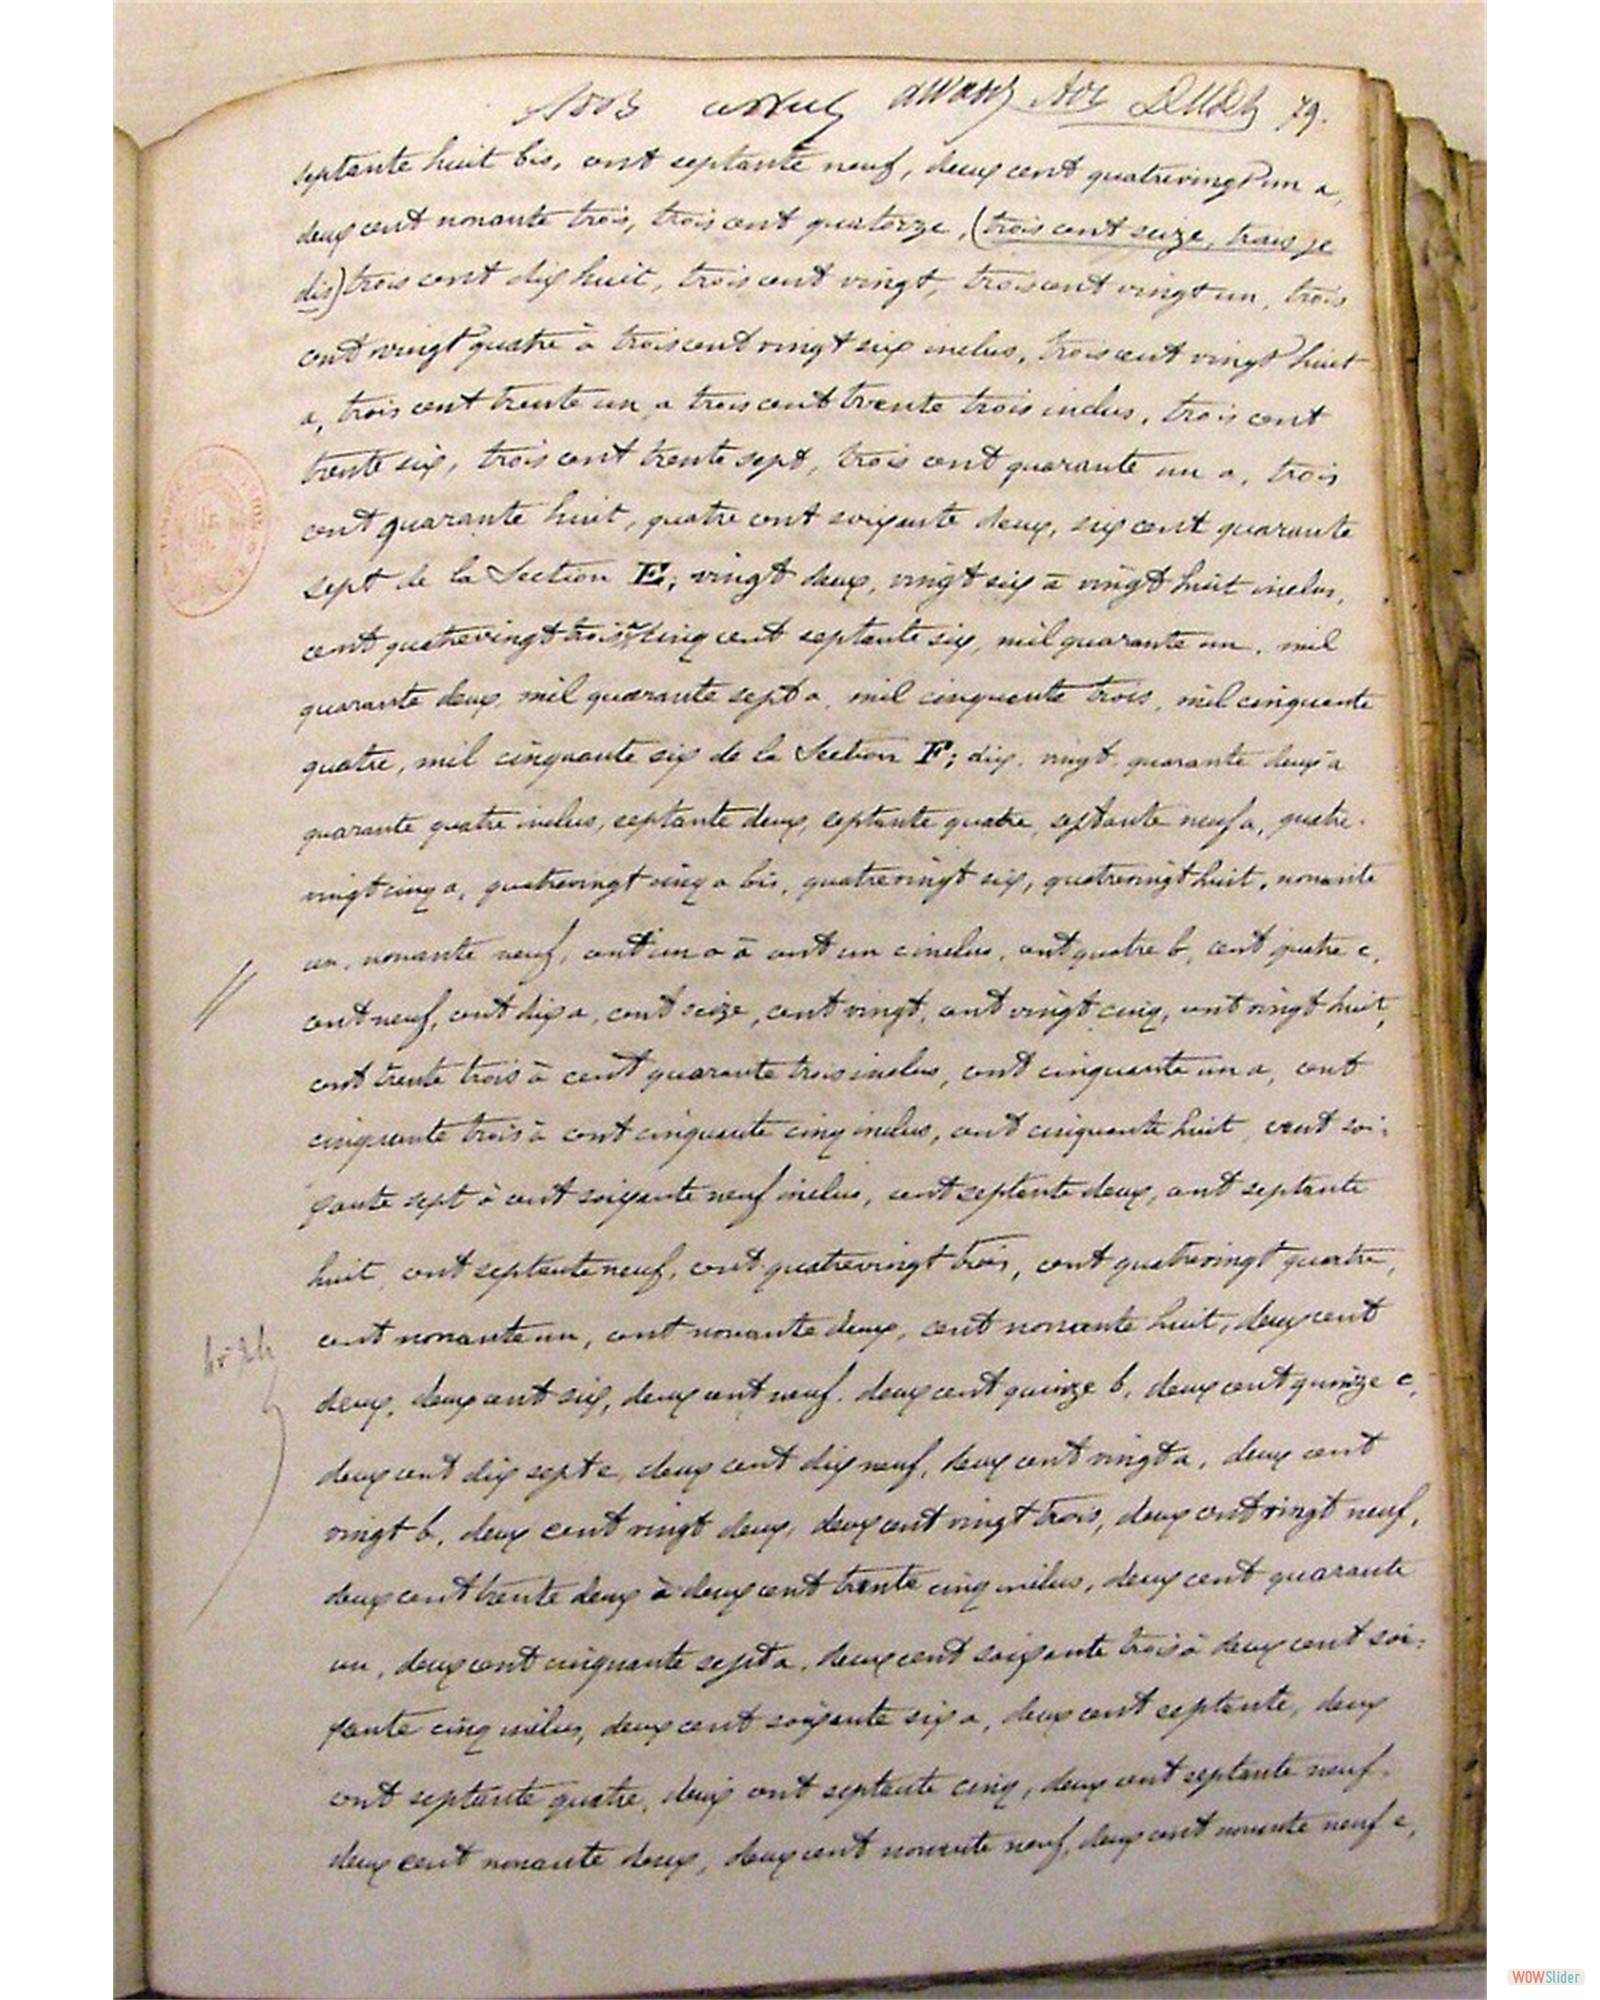 79.
septante huit bis, cent septante neuf, deux cent quatrevingt un a,
deux cent nonante trois, trois cent quatorze, (trois cent seize, trais je
dis) trois cent dix huit, trois cent vingt, trois cent vingt un, trois
cent vingt quatre à trois cent vingt six inclus, trois cent vingt huit
a, trois cent trente un a trois cent trente trois inclus, trois cent
trente six, trois cent trente sept, trois cent quarante un a, trois
cent quarante huit, quatre cent soixante deux, six cent quarante
sept de la Section E; vingt deux, vingt six à vingt huit inclus,
cent quatrevingt trois cinq cent septante six, mil quarante un, mil
quarante deux, mil quarante sept a, mil cinquante trois, mil cinquante
quatre, mil cinquante six de la Section F; dix, vingt, quarante deux à
quarante quatre inclus, septante deux, septante quatre, septante neuf a, quatre-
vingt cinq a, quatrevingt cinq a bis, quatrevingt six, quatrevingt huit, nonante
un, nonante neuf, cent un a à cent un c inclus, cent quatre b, cent quatre c,
cent neuf, cent dix a, cent seize, cent vingt, cent vingt cinq, cent vingt huit,
cent trente trois à cent quarante trois inclus, cent cinquante un a, cent
cinquante trois à cent cinquante cinq inclus, cent cinquante huit, cent soi-
xante sept à cent soixante neuf inclus, cent septante deux, cent septante
huit, cent septante neuf, cent quatrevingt trois, cent quatrevingt quatre,
cent nonante un, cent nonante deux, cent nonante huit, deux cent
deux, deux cent six, deux cent neuf, deux cent quinze b, deux cent quinze c,
deux cent dix sept c, deux cent dix neuf, deux cent vingt a, deux cent
vingt b, deux cent vingt deux, deux cent vingt trois, deux cent vingt neuf,
deux cent trente deux à deux cent trente cinq inclus, deux cent quarante
un, deux cent cinquante sept a, deux cent soixante trois à deux cent soi-
xante cinq inclus, deux cent soixante six a, deux cent septante, deux
cent septante quatre, deux cent septante cinq, deux cent septante neuf,
deux cent nonante deux, deux cent nonante neuf, deux cent nonante neuf c,
WOWSlider